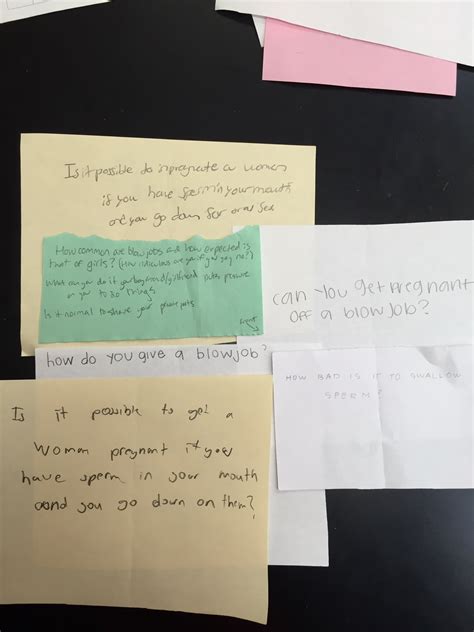 Is it possible do inpregnate a women
if you have sperm in your mouth
and you go down for oral sex
How common are blowjobs and how expected is
that of girls? (How ridiculous are you if you say no?)
What can you do if your boyfriend/girlfriend puts pressure
on you to do things
Is it normal to shave your private parts
Front
can you get pregnant
OFF a blowjob?
how do you give a blowjob?
HOW BAD IS IT TO SWALLOW
SPERM?
Is it possible to get a
Woman pregnant if you
have sperm in your mouth
and you go down on them?